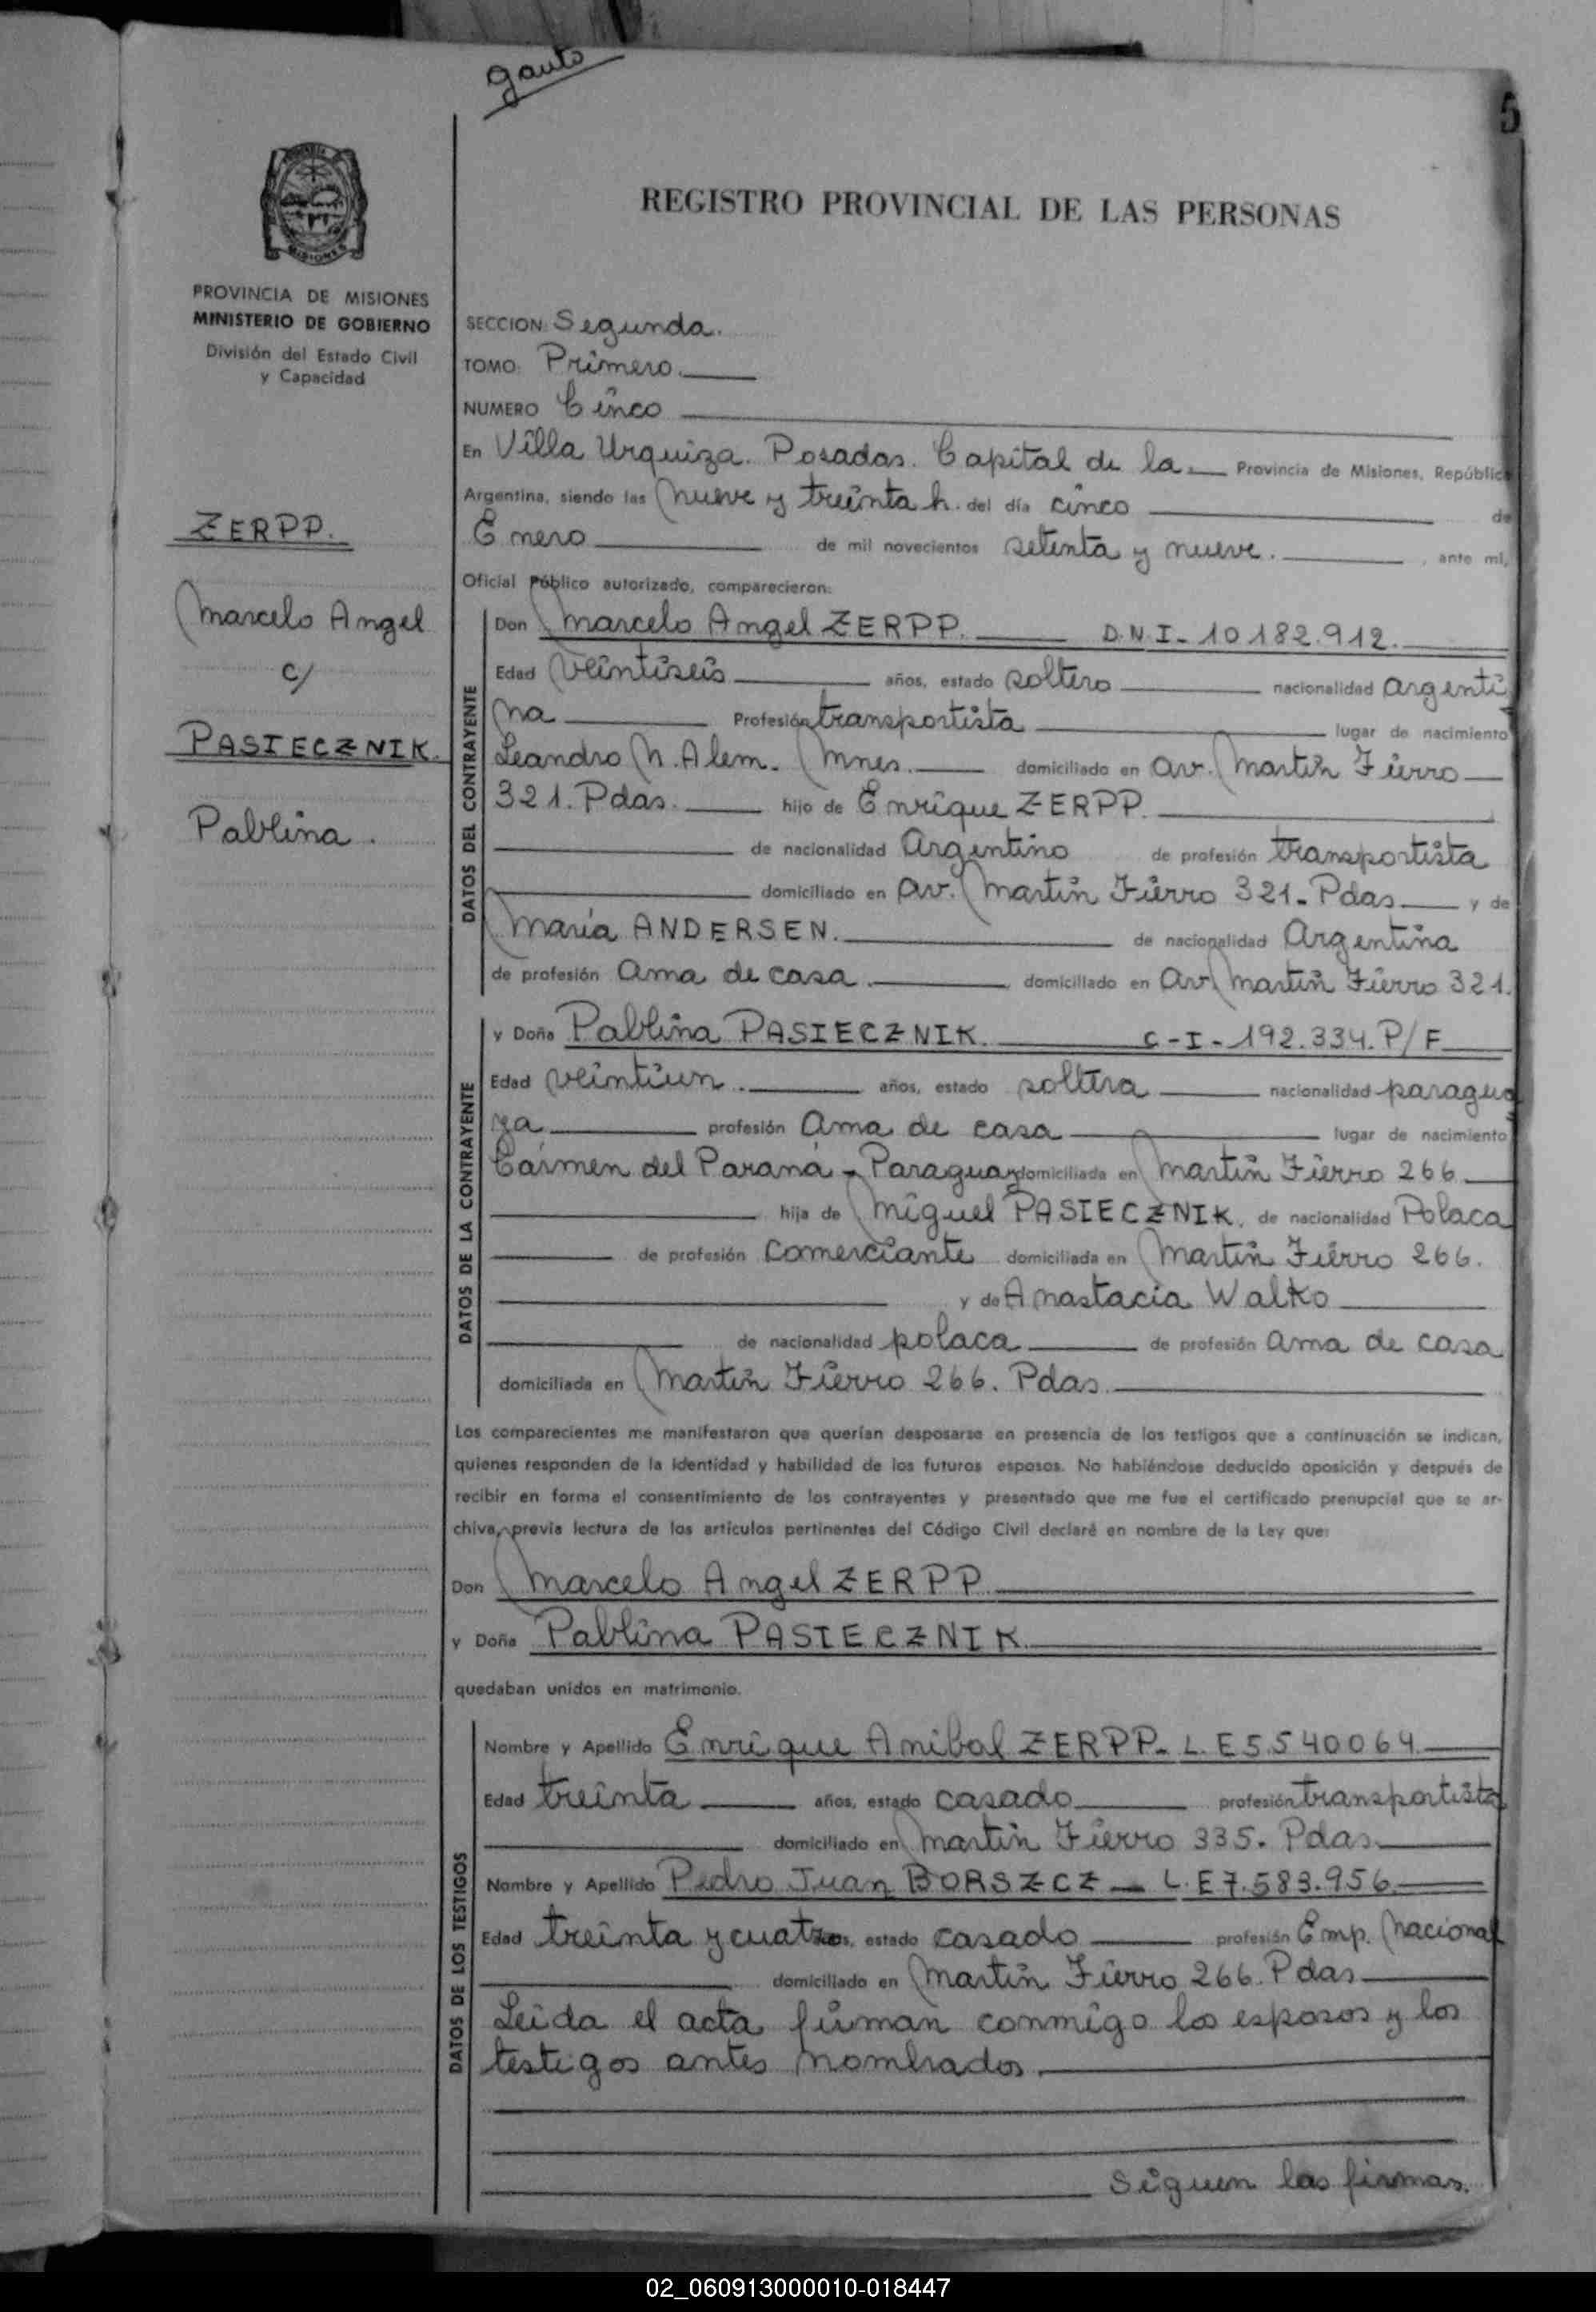 gauto
5
REGISTRO PROVINCIAL DE LAS PERSONAS
MISIONES
PROVINCIA DE MISIONES
MINISTERIO DE GOBIERNO
División del Estado Civil
y Capacidad
ZERPP.
Marcelo Angel
c/
PASIECZNIK.
Pablina.
SECCION: Segunda.
TOMO: Primero.
NUMERO Cinco
En Villa Urquiza. Posadas. Capital de la Provincia de Misiones, República
Argentina, siendo las nueve y treinta h. del día cinco de
Enero de mil novecientos setenta y nueve. , ante mí,
Oficial Público autorizado, comparecieron:
DATOS DEL CONTRAYENTE
Don Marcelo Angel ZERPP. D.N.I- 10.182.912.
Edad veintiseis años, estado soltero nacionalidad argenti
na Profesión transportista lugar de nacimiento
Leandro N. Alem. Mnes. domiciliado en av. Martin Fierro
321. Pdas. hijo de Enrique ZERPP.
de nacionalidad Argentino de profesión transportista
domiciliado en av. Martin Fierro 321- Pdas y de
Maria ANDERSEN. de nacionalidad Argentina
de profesión ama de casa. domiciliado en av. Martin Fierro 321.
DATOS DE LA CONTRAYENTE
y Doña Pablina PASIECZNIK. C-I-192.334. P/F
Edad veintiun. años, estado soltera nacionalidad paragua
ya profesión ama de casa lugar de nacimiento
Carmen del Paraná - Paraguay domiciliada en Martin Fierro 266
hija de Miguel PASIECZNIK, de nacionalidad Polaca
de profesión comerciante domiciliada en Martin Fierro 266.
y de Anastacia Walko
de nacionalidad polaca de profesión ama de casa
domiciliada en Martin Fierro 266. Pdas.
Los comparecientes me manifestaron que querían desposarse en presencia de los testigos que a continuación se indican,
quienes responden de la identidad y habilidad de los futuros esposos. No habiéndose deducido oposición y después de
recibir en forma el consentimiento de los contrayentes y presentado que me fue el certificado prenupcial que se ar-
chiva, previa lectura de los artículos pertinentes del Código Civil declaré en nombre de la Ley que:
Don Marcelo Angel ZERPP
y Doña Pablina PASIECZNIK.
quedaban unidos en matrimonio.
DATOS DE LOS TESTIGOS
Nombre y Apellido Enrique Anibal ZERPP- L.E 5.540064
Edad treinta años, estado casado profesión transportista
domiciliado en Martin Fierro 335. Pdas.
Nombre y Apellido Pedro Juan BORSZCZ - L.E 7.583.956
Edad treinta y cuatro años, estado casado profesión Emp. Nacional
domiciliado en Martin Fierro 266. Pdas
Leida el acta firman conmigo los esposos y los
testigos antes nombrados.
Siguen las firmas.
02_060913000010-018447